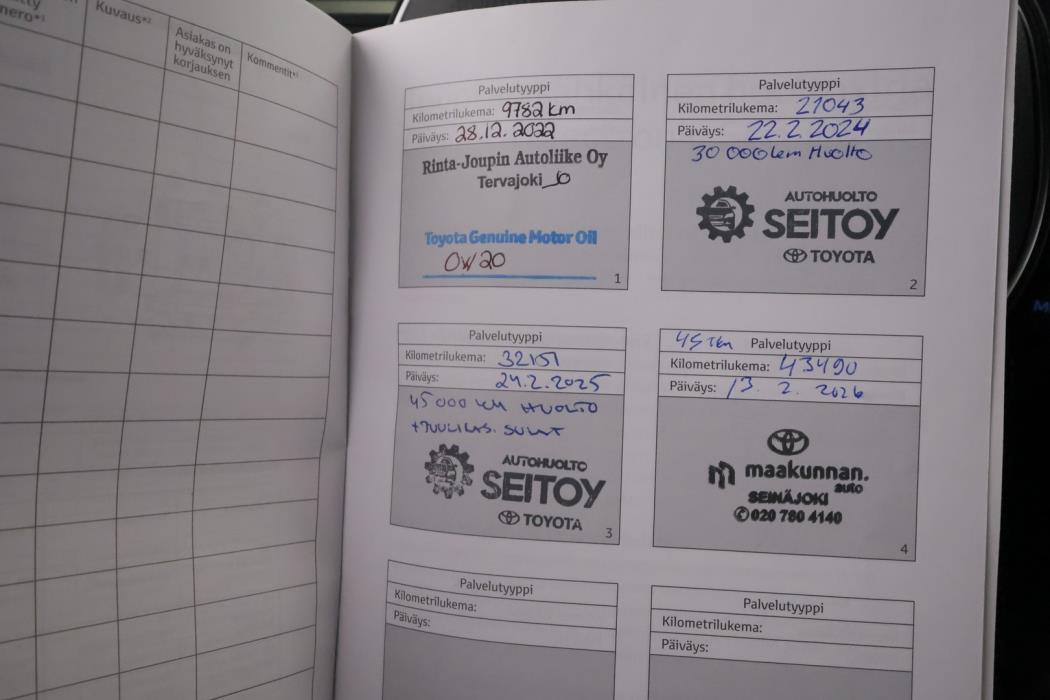 nero*¹
Kuvaus*²
Asiakas on
hyväksynyt
korjauksen
Kommentit*³
Palvelutyyppi
Kilometrilukema: 9782 km
Päiväys: 28.12.2022
Rinta-Joupin Autoliike Oy
Tervajoki
Toyota Genuine Motor Oil
0W20
1
Palvelutyyppi
Kilometrilukema: 21043
Päiväys: 22.2.2024
30 000 km Huolto
AUTOHUOLTO
SEITOY
TOYOTA
2
Palvelutyyppi
Kilometrilukema: 32151
Päiväys: 24.2.2025
45 000 km HUOLTO
+TUULILAS. SULAT
AUTOHUOLTO
SEITOY
TOYOTA
3
45 Tkm Palvelutyyppi
Kilometrilukema: 43490
Päiväys: 13. 2. 2026
maakunnan.
auto
SEINÄJOKI
020 780 4140
4
Palvelutyyppi
Kilometrilukema:
Päiväys:
Palvelutyyppi
Kilometrilukema:
Päiväys: